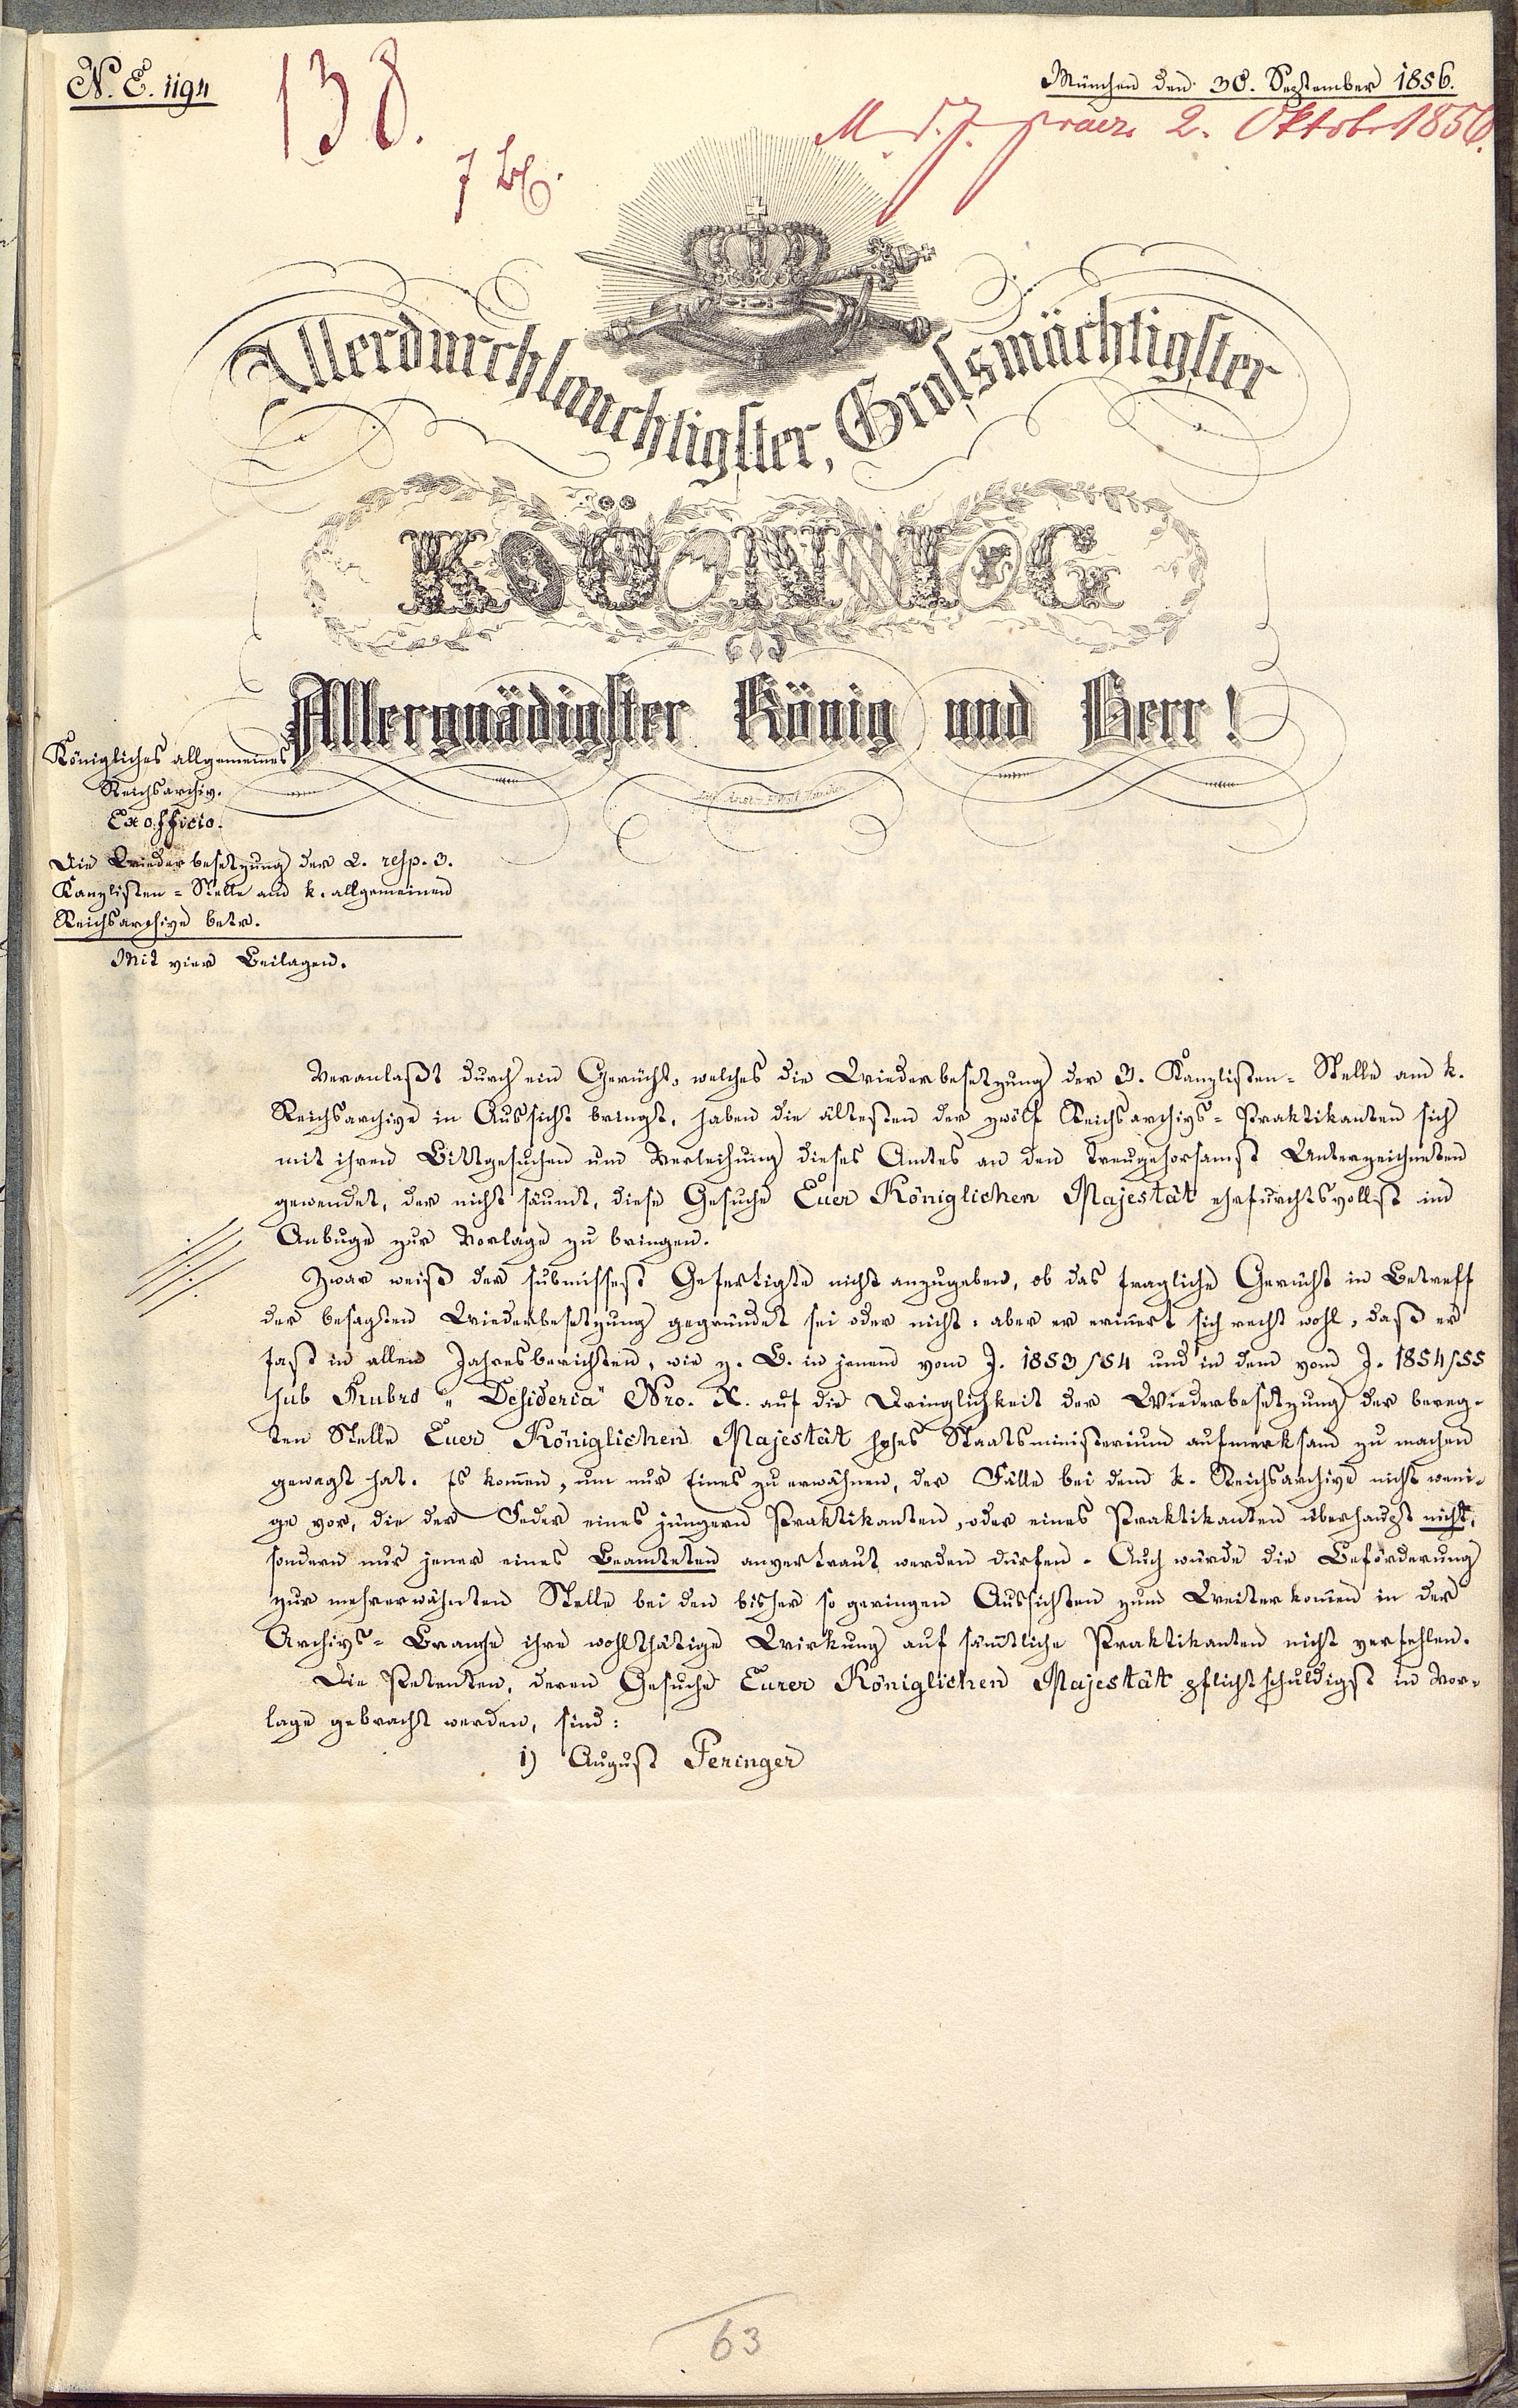 N. E. 1194
München den 30. September 1856.
138.
7 Bl.
M. d. J. praes. 2. Oktob. 1856.
Allerdurchlauchtigster, Grossmächtigster
KÖNIG
Allergnädigster König und Herr!
Königliches allgemeines
Reichsarchiv.
Ex officio.
Die Wiederbesetzung der 2. resp. 3.
Kanzlisten-Stelle am k. allgemeinen
Reichsarchive betr.
Mit vier Beilagen.
Veranlaßt durch ein Gerücht, welches die Wiederbesetzung der 3. Kanzlisten-Stelle am k.
Reichsarchive in Aussicht bringt, haben die ältesten der zwölf Reichsarchivs-Praktikanten sich
mit ihren Bittgesuchen um Verleihung dieses Amtes an den treugehorsamst Unterzeichneten
gewendet, der nicht säumt, diese Gesuche Euer Königlichen Majestät ehrfurchtsvollst im
Anbuge zur Vorlage zu bringen.
Zwar weiß der submissest Gefertigte nicht anzugeben, ob das fragliche Gerücht in Betreff
der besagten Wiederbesetzung gegründet sei oder nicht: aber er erinnert sich recht wohl, daß er
fast in allen Jahresberichten, wie z. B. in jenem vom J. 1853/54 und in dem vom J. 1854/55
sub Rubro "Desideria" Nro. X. auf die Dringlichkeit der Wiederbesetzung der bereg-
ten Stelle Euer Königlichen Majestät hohes Staatsministerium aufmerksam zu machen
gewagt hat. Es kom̅en, um nur Eines zu erwähnen, der Fälle bei dem k. Reichsarchive nicht weni-
ge vor, die der Feder eines jüngern Praktikanten, oder eines Praktikanten überhaupt nicht,
sondern nur jener eines Beamteten anvertraut werden dürfen. Auch würde die Beförderung
zur mehrerwähnten Stelle bei den bisher so geringen Aussichten zum Weiterkom̅en in der
Archivs-Branche ihre wohlthätige Wirkung auf säm̅tliche Praktikanten nicht verfehlen.
Die Petenten, deren Gesuche Eurer Königlichen Majestät pflichtschuldigst in Vor-
lage gebracht werden, sind:
1) August Feringer
63